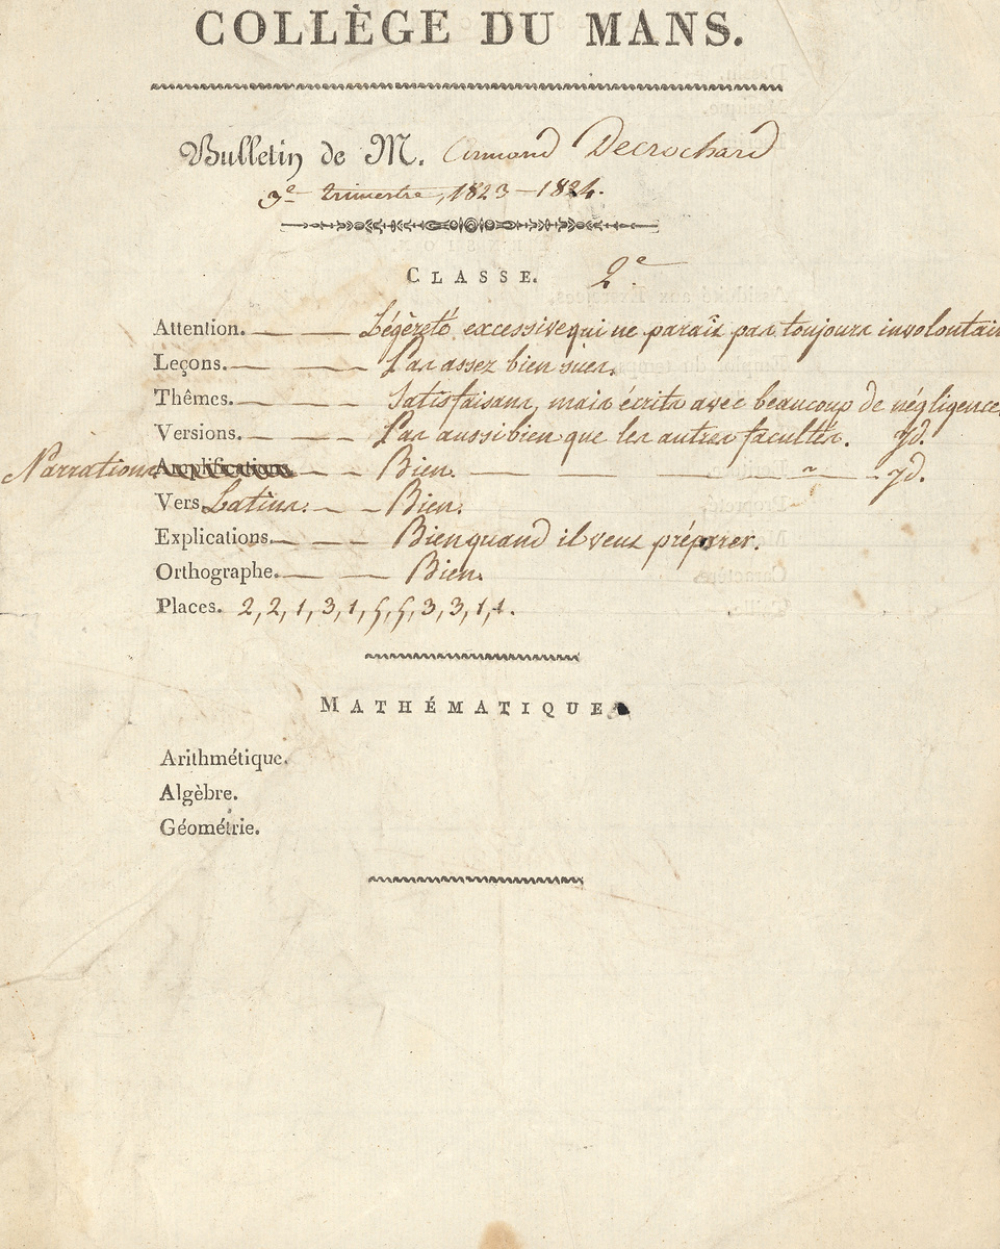 COLLÈGE DU MANS.
Bulletin de M. Armand Decrochard
3e trimestre, 1823 - 1824.
CLASSE. 2e
Attention. Légèreté excessive qui ne parait pas toujours involontair
Leçons. Pas assez bien sues.
Thêmes. Satisfaisans, mais écrits avec beaucoup de négligence
Versions. Pas aussi bien que les autres facultés. Id.
Narrations Bien. Id.
Vers Latins. Bien.
Explications. Bien quand il veut préparer.
Orthographe. Bien.
Places. 2, 2, 1, 3, 1, 5, 5, 3, 3, 1, 1.
MATHÉMATIQUE
Arithmétique.
Algèbre.
Géométrie.